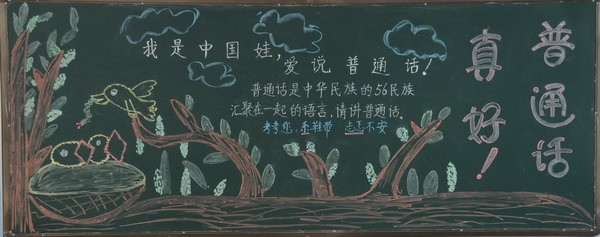 我是中国娃，
爱说普通话！
普通话是中华民族的56民族
汇聚在一起的语言，请讲普通话。
考考 系鞋带 忐忑不安
普通话
真好！